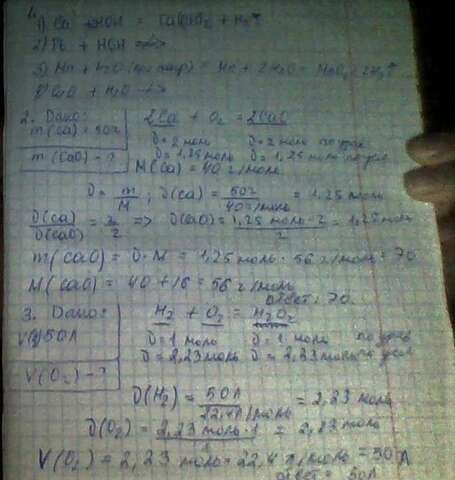 1) Ca + HOH = Ca(OH)₂ + H₂↑
2) Pb + HOH ≠>
3) Mn + H₂O
4) CuO + H₂O
2. Дано:
m(Ca) = 50г
m(CaO) - ?
2Ca + O₂ = 2CaO
υ = 2 моль υ = 2 моль по ур.
υ = 1,25 моль υ = 1,25 моль по усл
M(Ca) = 40 г/моль
υ = m/M ; υ(Ca) = 50г/40г/моль = 1,25 моль
υ(Ca)/υ(CaO) = 2/2 => υ(CaO) = 1,25 моль · 2/2 = 1,25 моль
m(CaO) = υ · M = 1,25 моль · 56 г/моль = 70
M(CaO) = 40 + 16 = 56 г/моль
ответ: 70.
3. Дано:
50л
V(O₂) - ?
H₂ + O₂ = H₂O₂
υ = 1 моль υ = 1 моль по ур
υ = 2,23 моль υ = 2,23 моль по усл
υ(H₂) = 50л/22,4л/моль = 2,23 моль
υ(O₂) = 2,23 моль · 1/1 = 2,23 моль
V(O₂) = 2,23 моль · 22,4 л/моль = 50 л
ответ = 50л